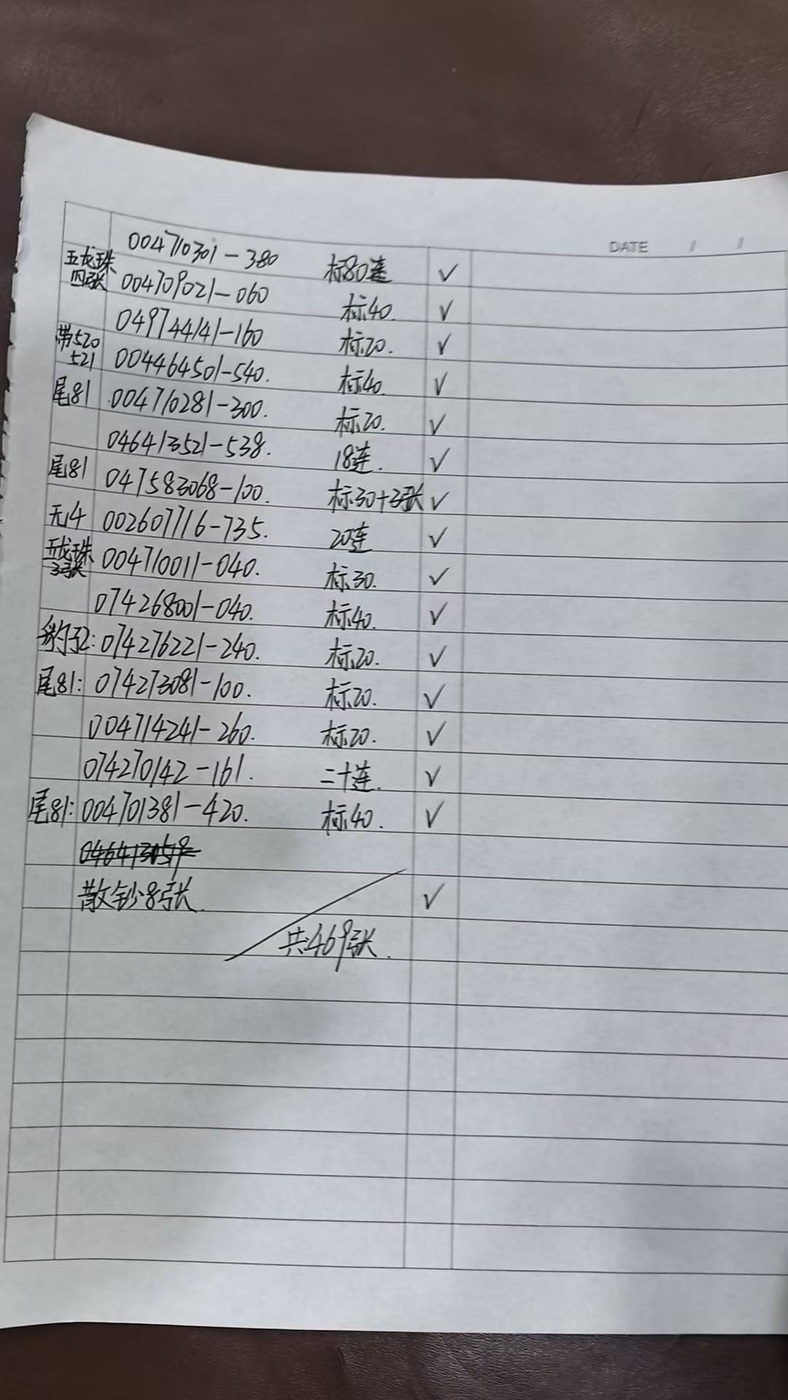 DATE / /
004710301-380 标80连 √
五龙珠四张 004709021-060 标40. √
049744141-160 标20. √
带520 521 004464501-540. 标40. √
尾81 004710281-300. 标20. √
046413521-538. 18连. √
尾81 047583068-100. 标30+3张 √
无4 002607716-735. 20连 √
五龙珠3张 004710011-040. 标30. √
074268001-040. 标40. √
豹子2: 074276221-240. 标20. √
尾81: 074273081-100. 标20. √
004714241-260. 标20. √
074270142-161. 二十连. √
尾81: 004701381-420. 标40. √
散钞8张. √
共469张.